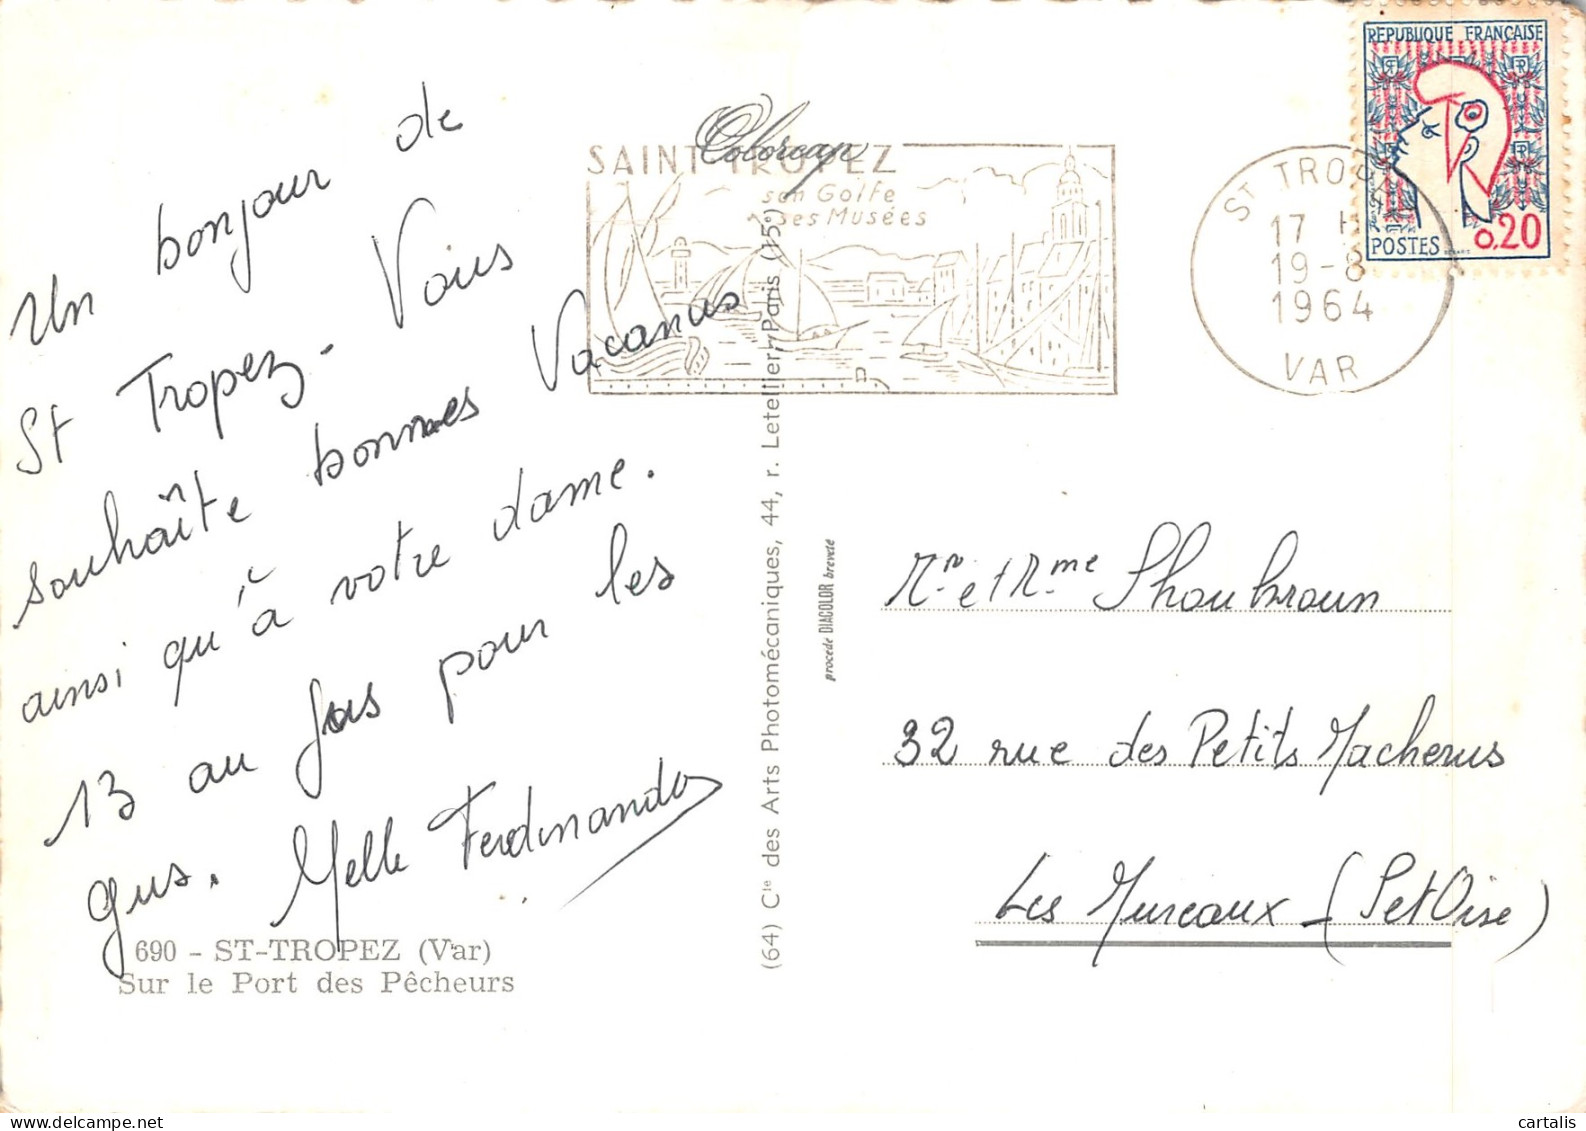 Un bonjour de
St Tropez. Vous
souhaîte bonnes Vacances
ainsi qu'à votre dame.
13 au pour les
Melle Ferdinando
690 - ST-TROPEZ (Var)
Sur le Port des Pêcheurs
(64) Cie des Arts Photomécaniques, 44, r. Letellier, Paris (15e)
procédé DIACOLOR breveté
Colorcap
SAINT TROPEZ
son Golfe
ses Musées
ST TROPEZ
17 H
19-8
1964
VAR
REPUBLIQUE FRANÇAISE
POSTES 0,20
Mr et Mme
32 rue des Petits Macherus
Les Mureaux - (S et Oise)
cartalis